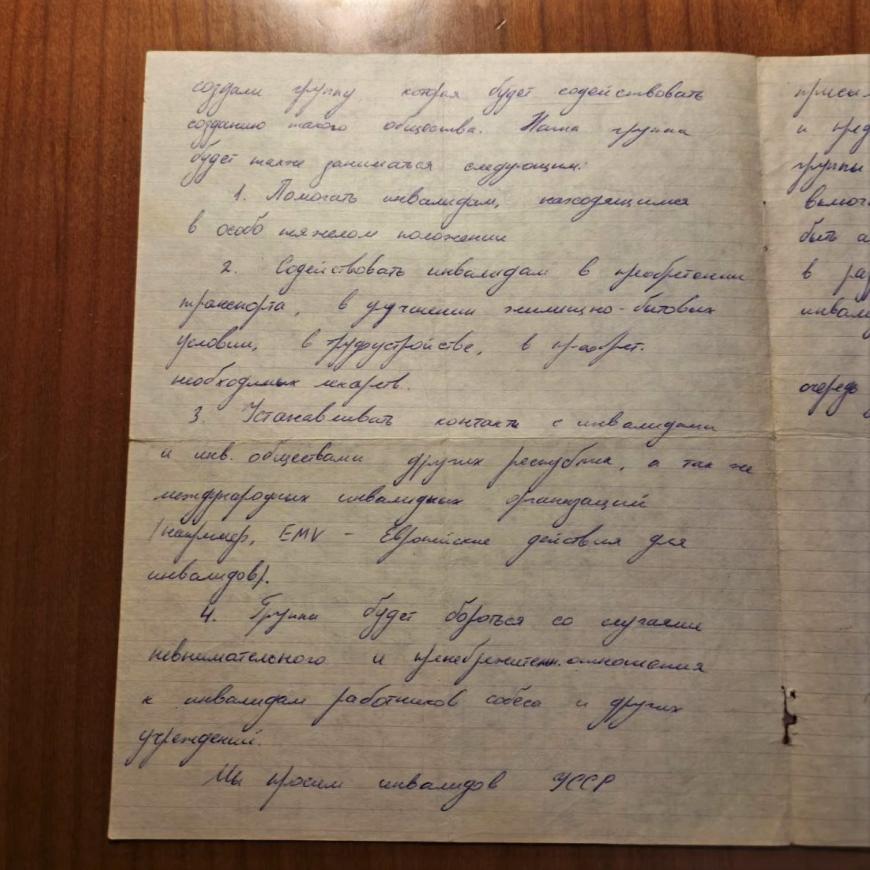 создали группу, которая будет содействовать
созданию такого общества. Наша группа
будет также заниматься следующим:
1. Помогать инвалидам, находящимся
в особо тяжелом положении
2. Содействовать инвалидам в приобретении
транспорта, в улучшении жилищно-бытовых
условий, в трудоустройстве, в приобрет.
необходимых лекарств.
3. Устанавливать контакты с инвалидами
и инв. обществами других республик, а так же
международных инвалидных организаций
(например, EMV - Европейские действия для
инвалидов).
4. Группа будет бороться со случаями
невнимательного и пренебрежительн. отношения
к инвалидам работников собеса и других
учреждений.
Мы просим инвалидов УССР
и пред
группы
включ
быть а
в ра
инвали
очередь